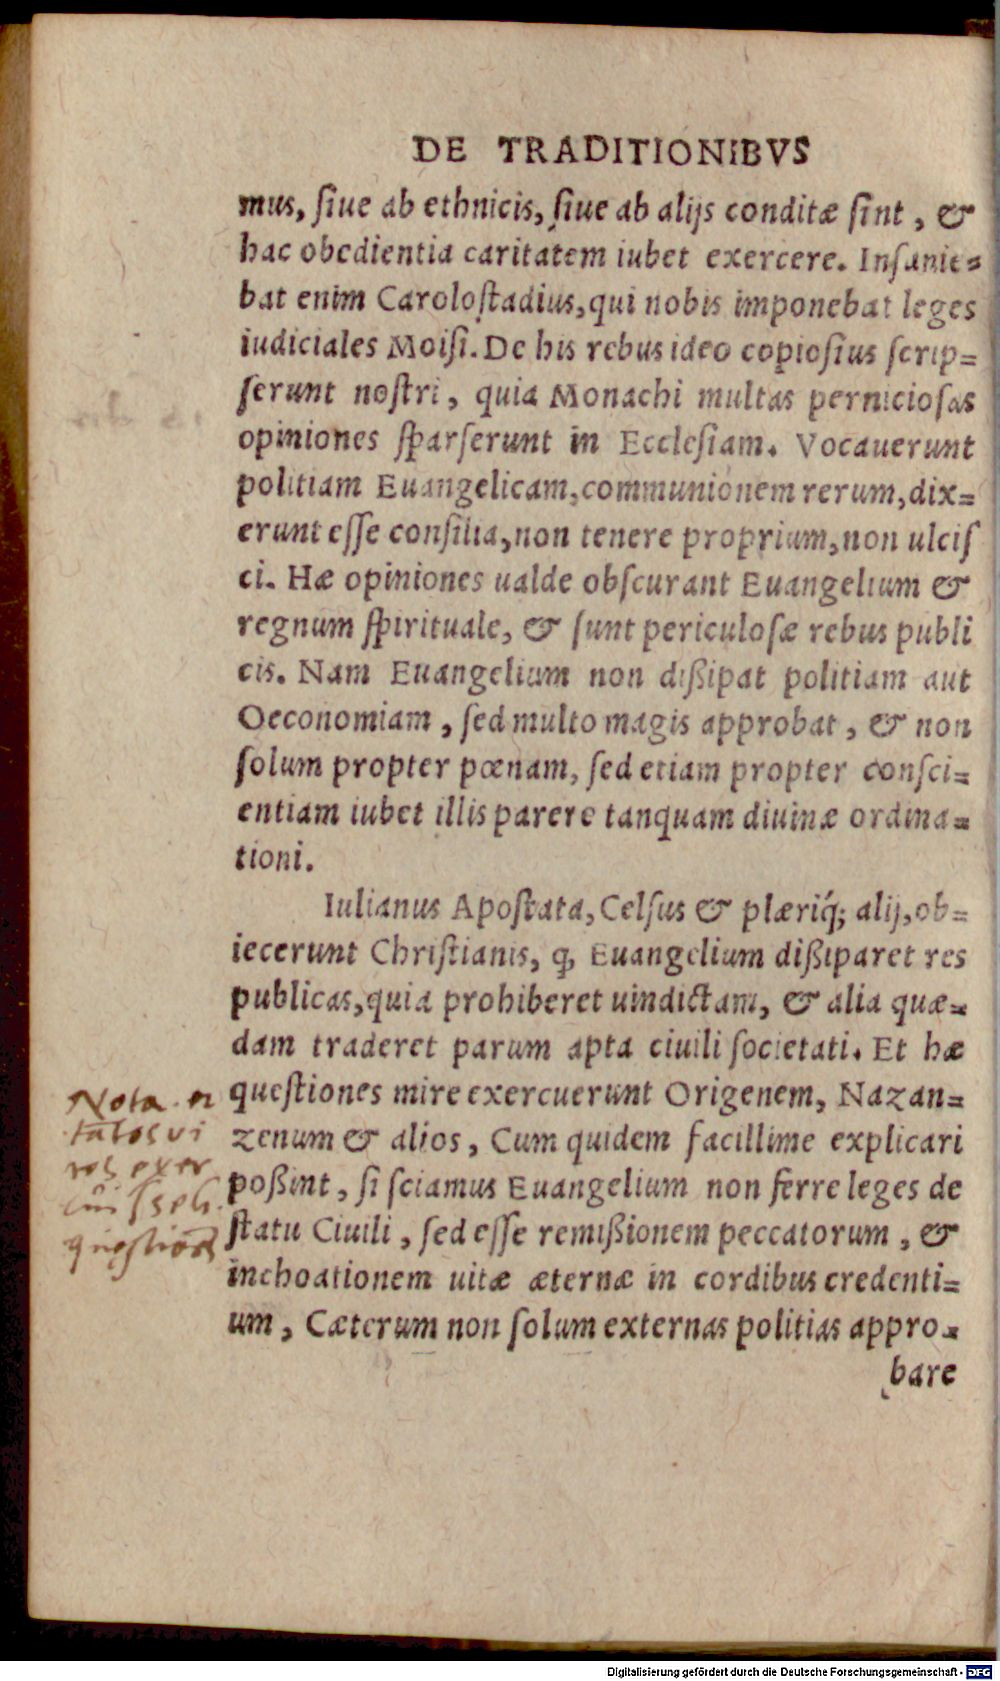 DE TRADITIONIBVS
mus, ſiue ab ethnicis, ſiue ab alijs conditæ ſint, &
hac obedientia caritatem iubet exercere. Inſanie=
bat enim Caroloſtadius, qui nobis imponebat leges
iudiciales Moiſi. De his rebus ideo copioſius ſcrip=
ſerunt noſtri, quia Monachi multas pernicioſas
opiniones ſparſerunt in Eccleſiam. Vocauerunt
politiam Euangelicam, communionem rerum, dix=
erunt eſſe conſilia, non tenere proprium, non ulciſ
ci. Hæ opiniones ualde obſcurant Euangelium &
regnum ſpirituale, & ſunt periculoſæ rebus publi
cis. Nam Euangelium non dißipat politiam aut
Oeconomiam, ſed multo magis approbat, & non
ſolum propter pœnam, ſed etiam propter conſci=
entiam iubet illis parere tanquam diuinæ ordina=
tioni.
Iulianus Apoſtata, Celſus & plæriq́; alij, ob=
iecerunt Chriſtianis, ꝙ Euangelium dißiparet res
publicas, quia prohiberet uindictam, & alia quæ=
dam traderet parum apta ciuili ſocietati. Et hæ
queſtiones mire exercuerunt Origenem, Nazan=
zenum & alios, Cum quidem facillime explicari
poßint, ſi ſciamus Euangelium non ferre leges de
ſtatu Ciuili, ſed eſſe remißionem peccatorum, &
inchoationem uitæ æternæ in cordibus credenti=
um, Cæterum non ſolum externas politias appro=
bare
Nota
tātos vi
ros exer
Digitalisierung gefördert durch die Deutsche Forschungsgemeinschaft - DFG